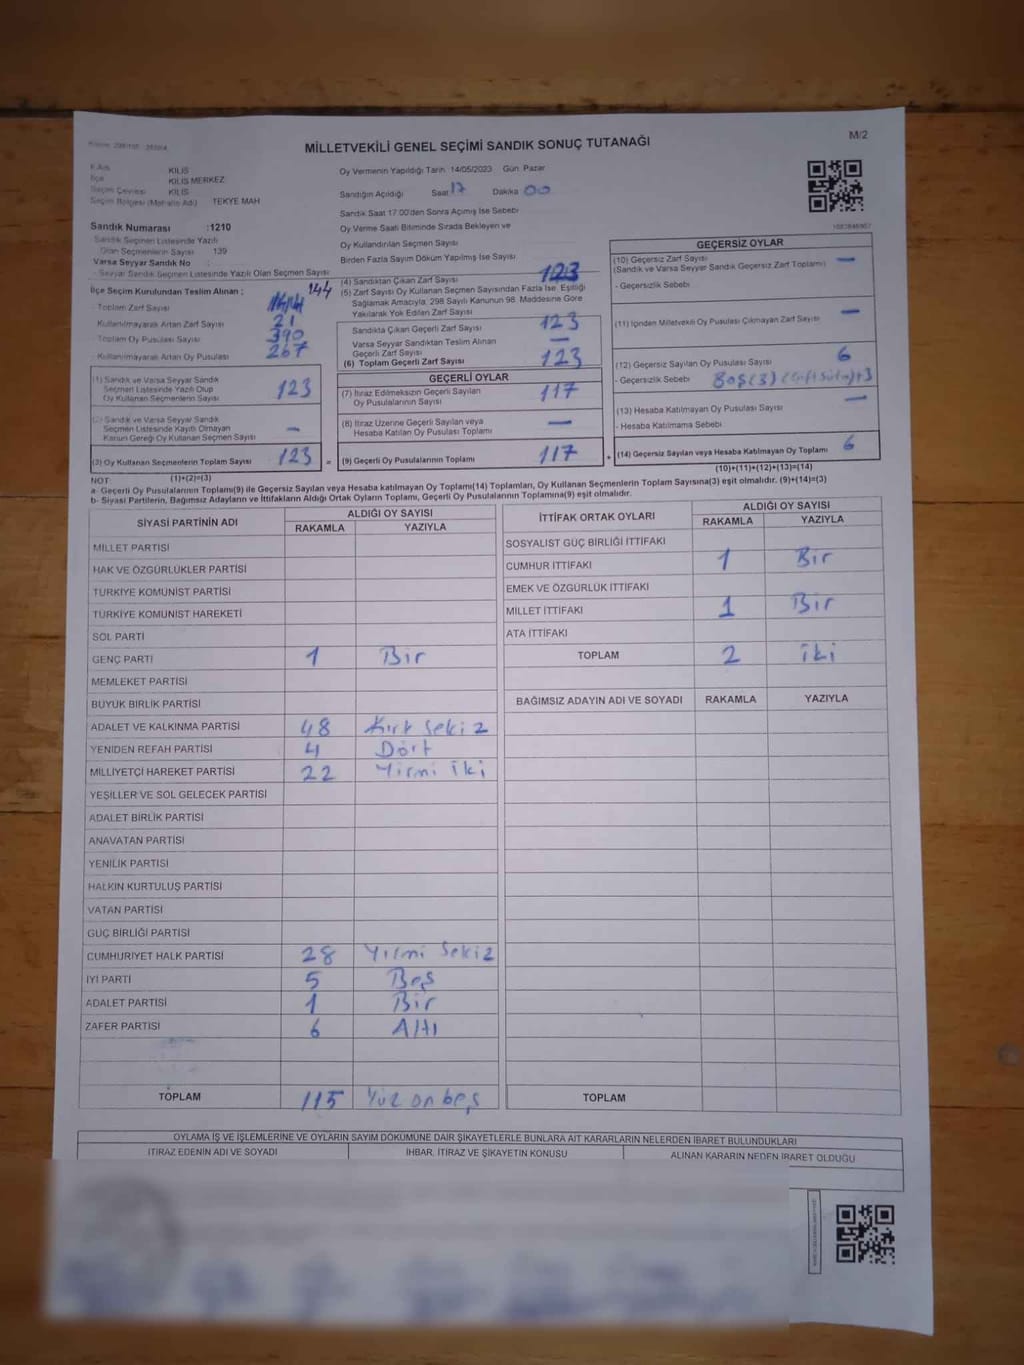 MİLLETVEKİLİ GENEL SEÇİMİ SANDIK SONUÇ TUTANAĞI
M/2
KİLİS
İlçe KİLİS MERKEZ
Seçim Çevresi KİLİS
Seçim Bölgesi (Mahalle Adı) TEKYE MAH
Sandık Numarası :1210
Sandık Seçmen Listesinde Yazılı
Olan Seçmenlerin Sayısı 139
Varsa Seyyar Sandık No
- Seyyar Sandık Seçmen Listesinde Yazılı Olan Seçmen Sayısı
İlçe Seçim Kurulundan Teslim Alınan ; 144
- Toplam Zarf Sayısı
- Kullanılmayarak Artan Zarf Sayısı 21
- Toplam Oy Pusulası Sayısı 390
- Kullanılmayarak Artan Oy Pusulası 267
(1) Sandık ve Varsa Seyyar Sandık
Seçmen Listesinde Yazılı Olup
Oy Kullanan Seçmenlerin Sayısı 123
(2) Sandık ve Varsa Seyyar Sandık
Seçmen Listesinde Kayıtlı Olmayan
Kanun Gereği Oy Kullanan Seçmen Sayısı –
(3) Oy Kullanan Seçmenlerin Toplam Sayısı 123 =
Oy Vermenin Yapıldığı Tarih 14/05/2023 Gün Pazar
Sandığın Açıldığı Saat 17 Dakika 00
Sandık Saat 17.00'den Sonra Açılmış İse Sebebi
Oy Verme Saati Bitiminde Sırada Bekleyen ve
Oy Kullandırılan Seçmen Sayısı
Birden Fazla Sayım Döküm Yapılmış İse Sayısı
(4) Sandıktan Çıkan Zarf Sayısı 123
(5) Zarf Sayısı Oy Kullanan Seçmen Sayısından Fazla İse, Eşitliği
Sağlamak Amacıyla, 298 Sayılı Kanunun 98. Maddesine Göre
Yakılarak Yok Edilen Zarf Sayısı
Sandıkta Çıkan Geçerli Zarf Sayısı 123
Varsa Seyyar Sandıktan Teslim Alınan
Geçerli Zarf Sayısı –
(6) Toplam Geçerli Zarf Sayısı 123
GEÇERLİ OYLAR
(7) İtiraz Edilmeksizin Geçerli Sayılan
Oy Pusulalarının Sayısı 117
(8) İtiraz Üzerine Geçerli Sayılan veya
Hesaba Katılan Oy Pusulası Toplamı –
(9) Geçerli Oy Pusulalarının Toplamı 117 +
GEÇERSİZ OYLAR
(10) Geçersiz Zarf Sayısı –
(Sandık ve Varsa Seyyar Sandık Geçersiz Zarf Toplamı)
- Geçersizlik Sebebi
(11) İçinden Milletvekili Oy Pusulası Çıkmayan Zarf Sayısı –
(12) Geçersiz Sayılan Oy Pusulası Sayısı 6
- Geçersizlik Sebebi BOŞ(3)
(13) Hesaba Katılmayan Oy Pusulası Sayısı –
- Hesaba Katılmama Sebebi
(14) Geçersiz Sayılan veya Hesaba Katılmayan Oy Toplamı 6
NOT: (1)+(2)=(3) (10)+(11)+(12)+(13)=(14)
a- Geçerli Oy Pusulalarının Toplamı(9) ile Geçersiz Sayılan veya Hesaba Katılmayan Oy Toplamı(14) Toplamları, Oy Kullanan Seçmenlerin Toplam Sayısına(3) eşit olmalıdır. (9)+(14)=(3)
b- Siyasi Partilerin, Bağımsız Adayların ve İttifakların Aldığı Ortak Oyların Toplamı, Geçerli Oy Pusulalarının Toplamına(9) eşit olmalıdır.
SİYASİ PARTİNİN ADI ALDIĞI OY SAYISI
RAKAMLA YAZIYLA
MİLLET PARTİSİ
HAK VE ÖZGÜRLÜKLER PARTİSİ
TÜRKİYE KOMÜNİST PARTİSİ
TÜRKİYE KOMÜNİST HAREKETİ
SOL PARTİ
GENÇ PARTİ 1 Bir
MEMLEKET PARTİSİ
BÜYÜK BİRLİK PARTİSİ
ADALET VE KALKINMA PARTİSİ 48 Kırk sekiz
YENİDEN REFAH PARTİSİ 4 Dört
MİLLİYETÇİ HAREKET PARTİSİ 22 Yirmi iki
YEŞİLLER VE SOL GELECEK PARTİSİ
ADALET BİRLİK PARTİSİ
ANAVATAN PARTİSİ
YENİLİK PARTİSİ
HALKIN KURTULUŞ PARTİSİ
VATAN PARTİSİ
GÜÇ BİRLİĞİ PARTİSİ
CUMHURİYET HALK PARTİSİ 28 Yirmi sekiz
İYİ PARTİ 5 Beş
ADALET PARTİSİ 1 Bir
ZAFER PARTİSİ 6 Altı
TOPLAM 115 Yüz on beş
İTTİFAK ORTAK OYLARI ALDIĞI OY SAYISI
RAKAMLA YAZIYLA
SOSYALİST GÜÇ BİRLİĞİ İTTİFAKI
CUMHUR İTTİFAKI 1 Bir
EMEK VE ÖZGÜRLÜK İTTİFAKI
MİLLET İTTİFAKI 1 Bir
ATA İTTİFAKI
TOPLAM 2 iki
BAĞIMSIZ ADAYIN ADI VE SOYADI RAKAMLA YAZIYLA
TOPLAM
OYLAMA İŞ VE İŞLEMLERİNE VE OYLARIN SAYIM DÖKÜMÜNE DAİR ŞİKAYETLERLE BUNLARA AİT KARARLARIN NELERDEN İBARET BULUNDUKLARI
İTİRAZ EDENİN ADI VE SOYADI İHBAR, İTİRAZ VE ŞİKAYETİN KONUSU ALINAN KARARIN NEDEN İBARET OLDUĞU